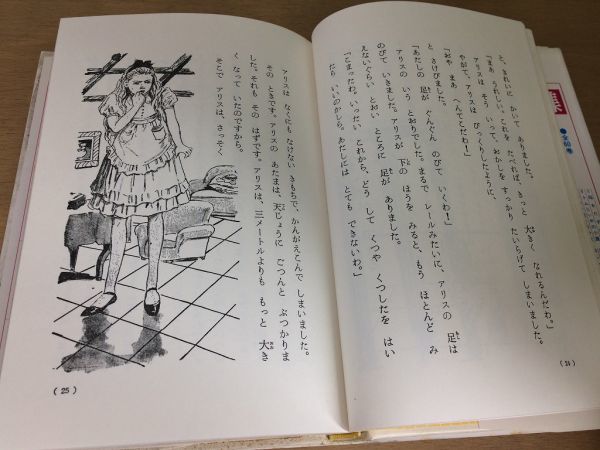 と、きれいに かいて ありました。
「まあ うれしい。これを たべれば、きっと 大きく なれるんだわ。」
アリスは そう いって、おかしを すっかり たいらげて しまいました。
やがて、アリスは びっくりしたように、
「おや まあ へんてこだわ！」
と、さけびました。
「あたしの 足が ぐんぐん のびて いくわ！」
アリスの いう とおりでした。まるで レールみたいに、アリスの 足は
のびて いきました。アリスが 下の ほうを みると、もう ほとんど み
えないぐらい とおい ところに 足が ありました。
「こまったわ。いったい これから、どう して くつや くつしたを はい
たら いいのかしら。わたしには とても できないわ。」
(24)
アリスは なくにも なけない きもちで、かんがえこんで しまいました。
その ときです。アリスの あたまは、天じょうに ごつんと ぶつかりま
した。それも その はずです。アリスは、三メートルよりも もっと 大き
く なって いたのですから。
そこで アリスは、さっそく
(25)
全60巻